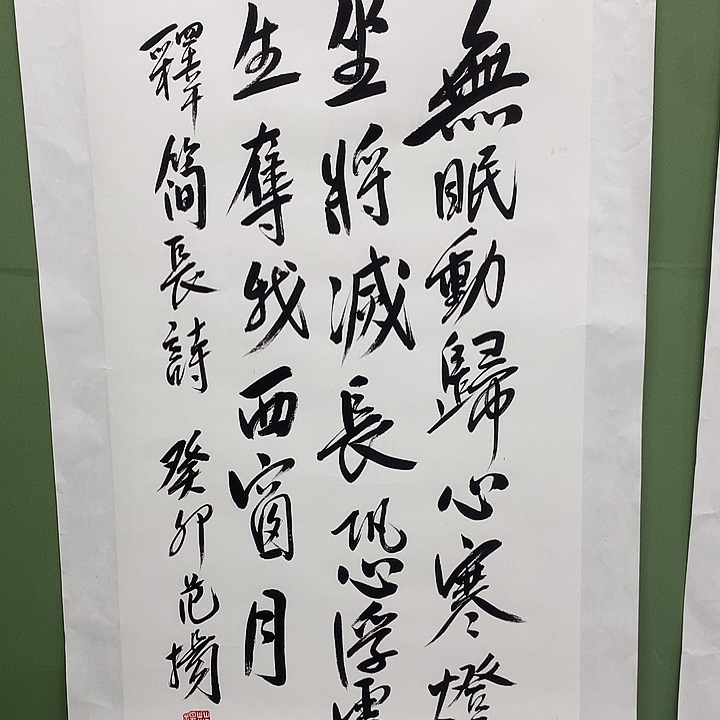 無眠動歸心寒燈
坐將滅長恐浮雲
生奪我西窗月
釋簡長詩 癸卯 范揚